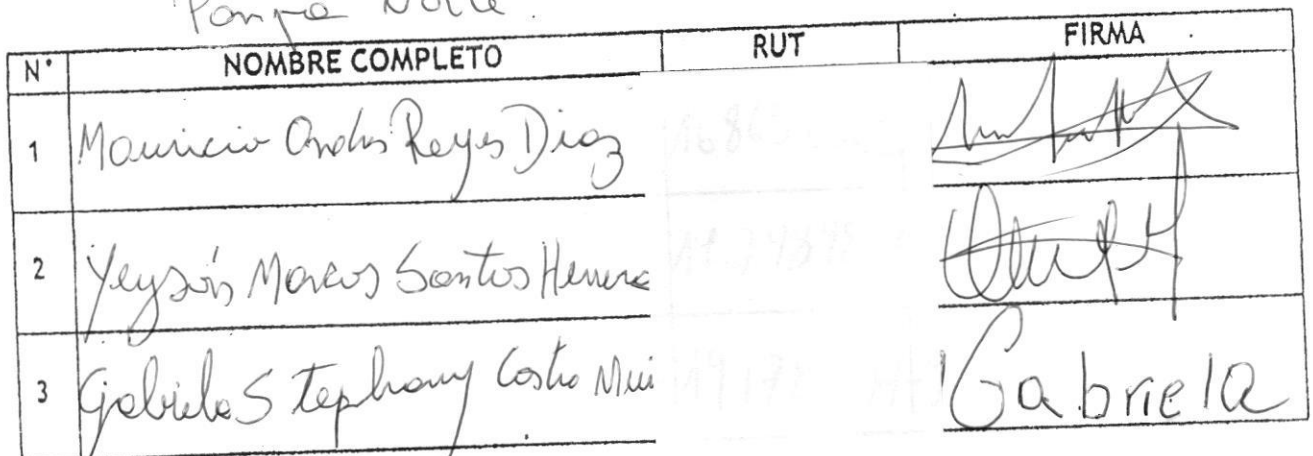 Pampa Norte.
N° NOMBRE COMPLETO RUT FIRMA
1 Mauricio Andres Reyes Diaz
2 Yeysón Marcos Santos Herrera
3 Gabriela Stephany Castro Gabriela